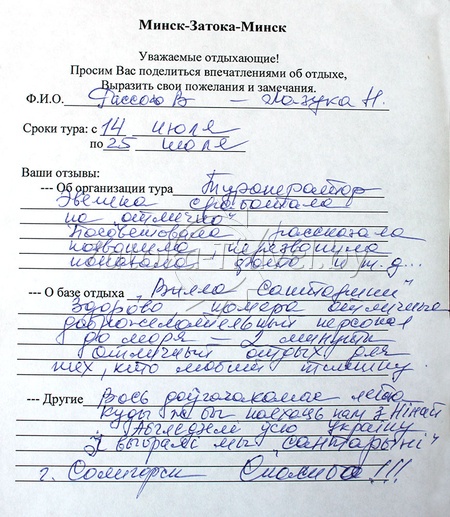 Минск-Затока-Минск
Уважаемые отдыхающие!
Просим Вас поделиться впечатлениями об отдыхе,
Выразить свои пожелания и замечания.
Ф.И.О. В – Лазука Н.
Сроки тура: с 14 июля
по 25 июля
Ваши отзывы:
--- Об организации тура Туроператор
Эвелина сработала
на "отлично"
Посоветовала рассказала
позвонила перезвонила
показала фото и т.д...
--- О базе отдыха "Вилла Санторини"
Здорово номера отличные
доброжелательный персонал
до моря – 2 минуты
Отличный отдых для
тех, кто любит тишину.
--- Другие Вось доўгачаканае лета
Куды ж бы поехаць нам з Нінай
Абгледжем усю украіну
І выбралі мы "Сантарыні"
г. Солигорск Спасибо!!!